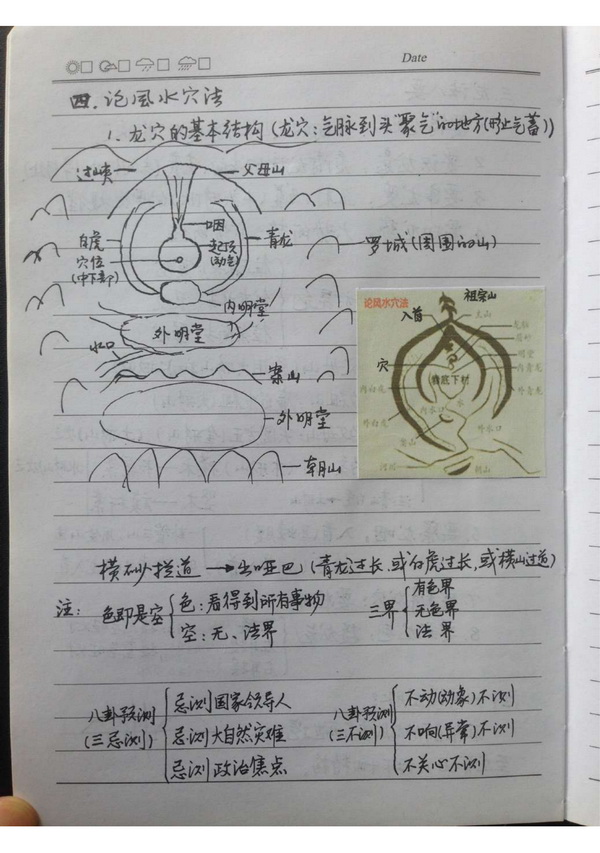 Date
四.论风水穴法
1.龙穴的基本结构(龙穴:气脉到头"聚气"的地方(形止气蓄))
过峡
父母山
咽
白虎
起顶
(动色)
青龙
穴位
(中下部)
罗城(周围的山)
内明堂
外明堂
水口
案山
外明堂
朝山
论风水穴法
祖宗山
入首
太山
穴
明堂
内青龙
内白虎
水
外青龙
外白虎
内水口
外水口
案山
朝山
横砂拦道→出哑巴(青龙过长,或白虎过长,或横山过道)
注:色即是空
色:看得到所有事物
空:无、法界
三界
有色界
无色界
法界
八卦预测
(三忌测)
忌测国家领导人
忌测大自然灾难
忌测政治焦点
八卦预测
(三不测)
不动(动象)不测
不响(异常)不测
不关心不测